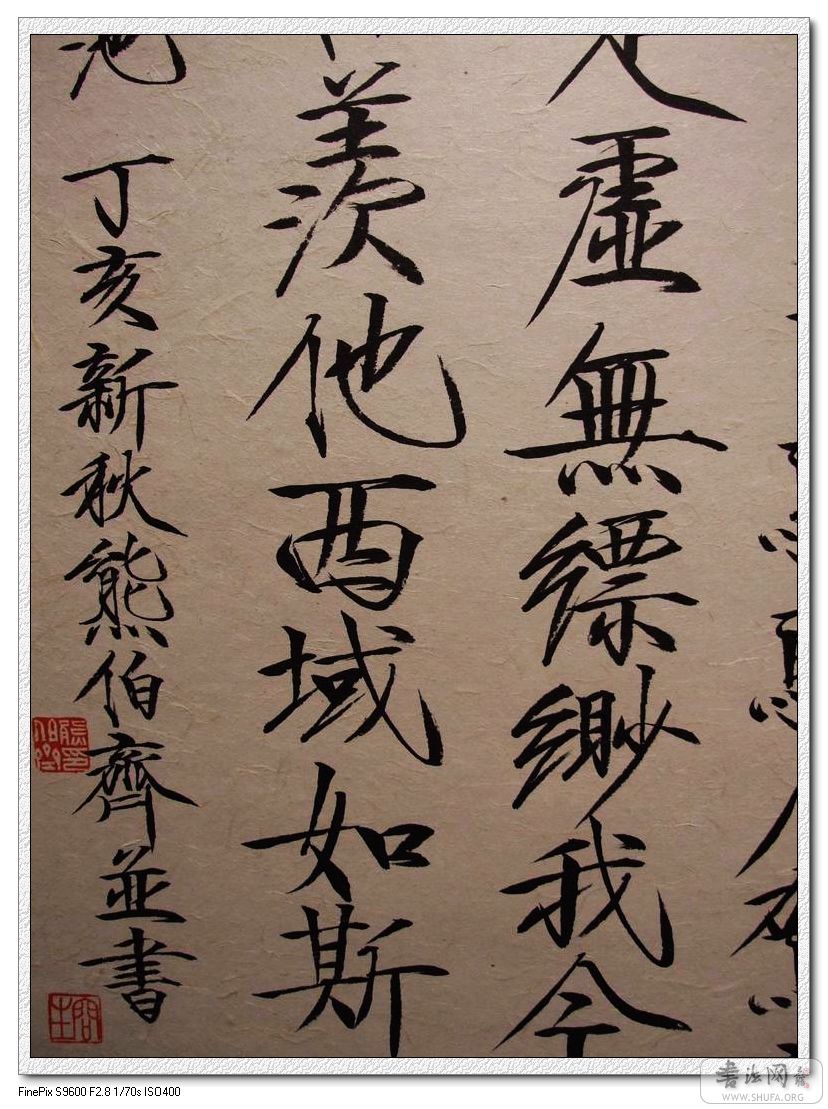 虛無縹緲我今
羨他西域如斯
池 丁亥新秋熊伯齊並書
FinePix S9600 F2.8 1/70s ISO400
书法网
WWW.SHUFA.ORG